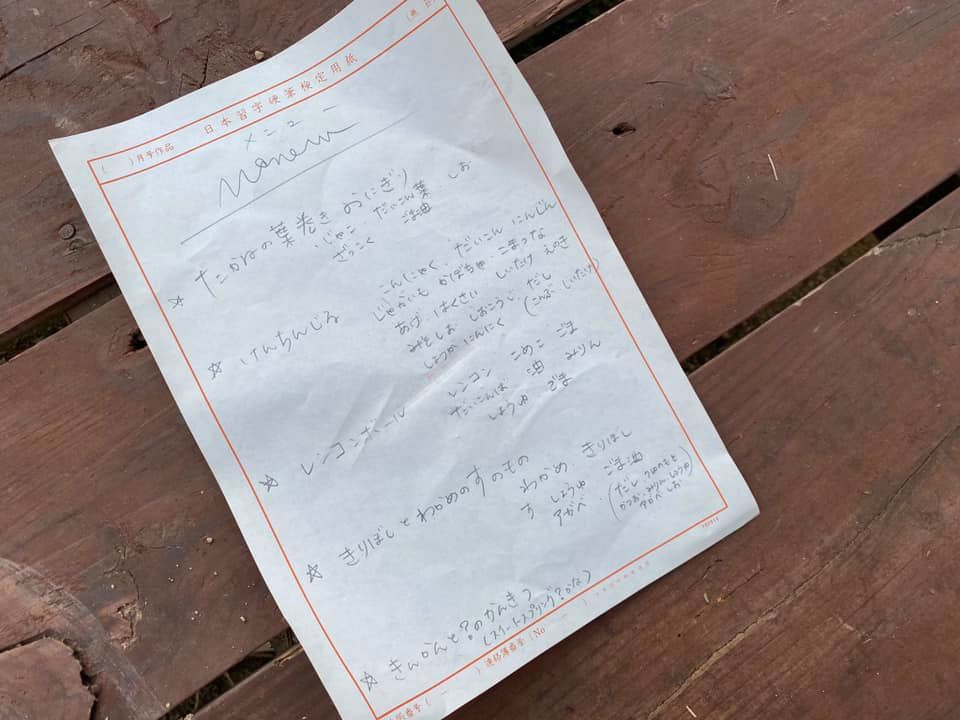 日本習字硬筆検定用紙
( )月号作品
メニュー
Menew
☆ たかなの葉巻き おにぎり
じゃこ だいこん葉 しお
ざっこく ごま油
☆ けんちんじる
こんにゃく・だいこん・にんじん
じゃがいも かぼちゃ・こまつな
あげ・はくさい しいたけ えのき
みそ しお しおこうじ・だし
しょうが にんにく (こんぶ しいたけ)
☆ レンコンボール
レンコン こめこ ごま
だいこんば 油 みりん
しょうゆ ごま
☆ きりぼしとわかめのすのもの
わかめ・きりぼし
しょうゆ ごま油
す アガベ
(だし つゆのもと
かつお・みりん・しょうゆ
アガベ しお)
☆ きんかんと?のかんきつ
(スイートスプリング?かな)
)連絡簿番号(No